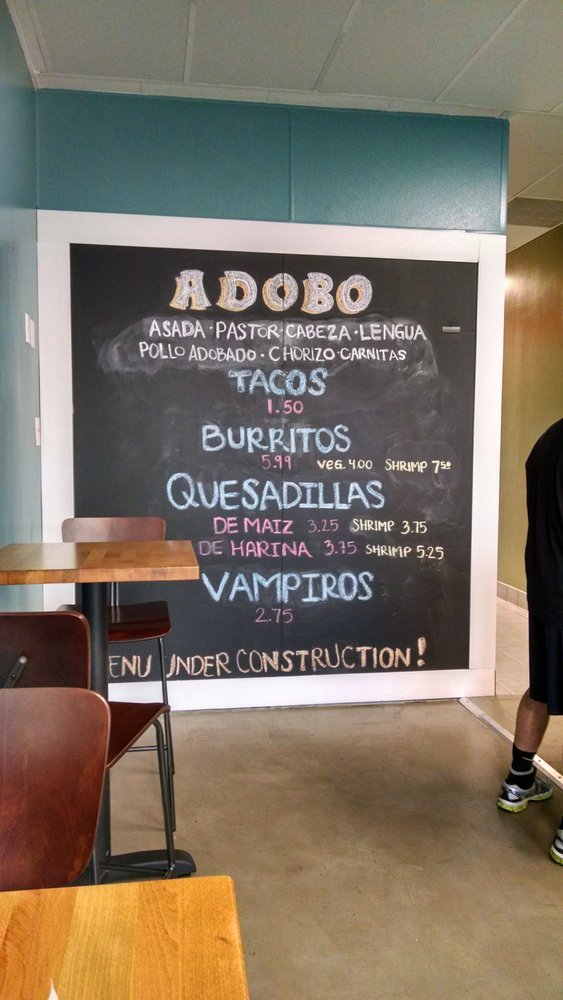 ADOBO
ASADA · PASTOR · CABEZA · LENGUA
POLLO ADOBADO · CHORIZO · CARNITAS
TACOS
1.50
BURRITOS
5.99 VEG. 4.00 SHRIMP 7.50
QUESADILLAS
DE MAIZ 3.25 SHRIMP 3.75
DE HARINA 3.75 SHRIMP 5.25
VAMPIROS
2.75
ENU UNDER CONSTRUCTION!